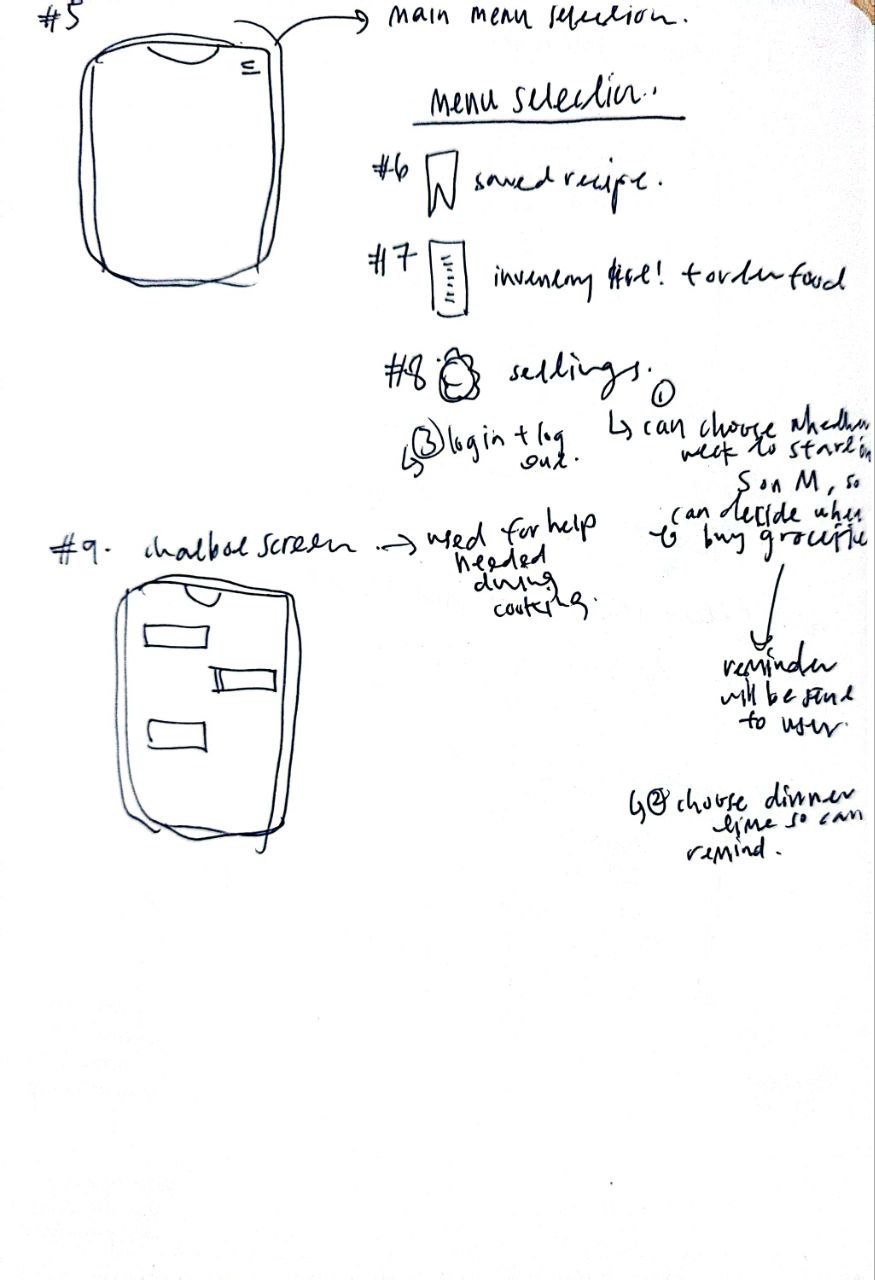 #5
main menu selection.
menu selection.
#6 saved recipe.
#7 inventory + order food
#8 settings.
①
↳ can choose whether
week to start on
S or M, so
can decide when
to buy groceries
reminder
will be sent
to user.
↳ ② choose dinner
time so can
remind.
↳ ③ login + log
out.
#9. chatbot screen → used for help
needed
during
cooking.